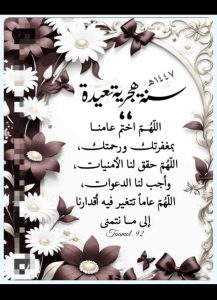 ١٤٤٧هـ
سنة هجرية سعيدة
اللهم اختم عامنا
بمغفرتك ورحمتك،
اللهم حقق لنا الأمنيات،
وأجب لنا الدعوات،
اللهم عاماً تتغير فيه أقدارنا
إلى ما نتمنى